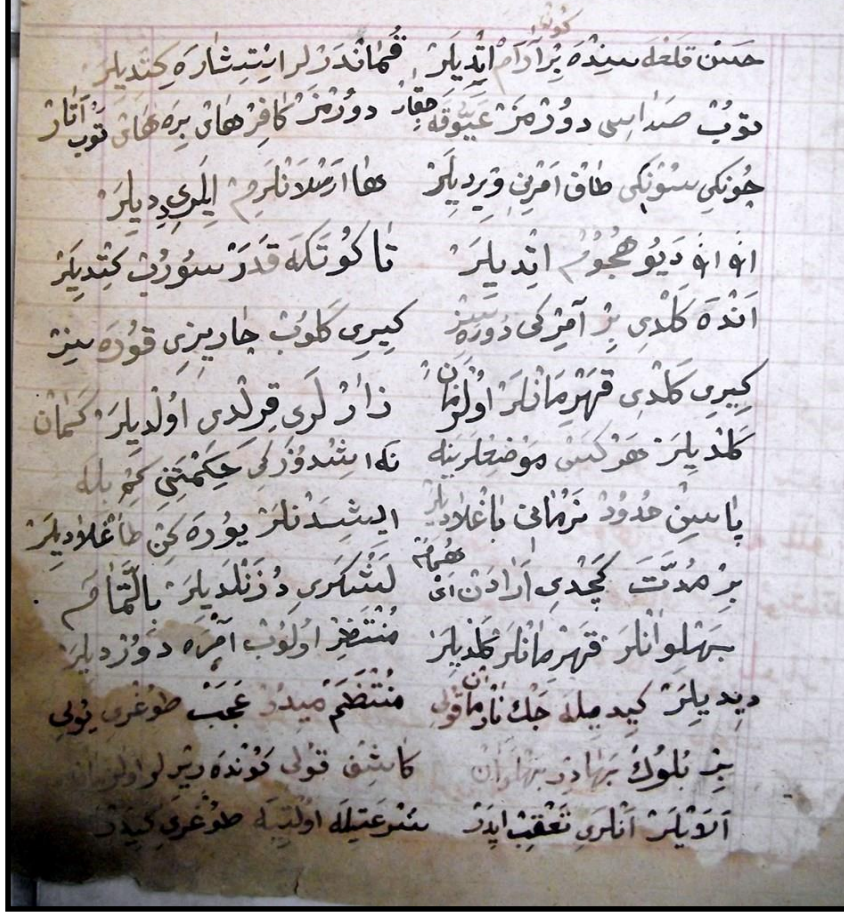 كون
حسن قلعه سنده بر آرام اتديلر قُمَاندَرلر استشاره كتديلر
توپ صداسى دورمز عيّوقه چقار دورمز كافر هاى بره هاى توپ آتار
چونكى سونكى طاق امرنى ويرديلر ها ارسلانلرم ايلرى ديديلر
ديو هجوم اتديلر تا كوتكه قدر سوروب كتديلر
آنده كلدى بر آمر كى دوره سز كيرى كلوب چاديرى قوره سز
كيرى كلدى قهرمانلر اول زمان زارلرى قرلدى اولديلر كمان
كلديلر هركس موضعلرينه نه ايشدور كى حكمتنى كم بله
پاسين حدود نرمانى باغلاديلر ايشيدنلر يوره كن طاغلاديلر
بر مدّت كچدى ارادن اى همام لشكرى دزنلديلر بالتّمام
پهلوانلر قهرمانلر كلديلر منتظر اولوب آمره دورديلر
ديديلر كيديله جك نارمان قولى منتظم ميدر عجب طوغرى يولى
بر بلوك بهادر پهلوان كاشف قولى كونده ريرلر اول زمان
آلايلر آنلرى تعقيب ايدر سرعتيله اولتيه طوغرى كيدر